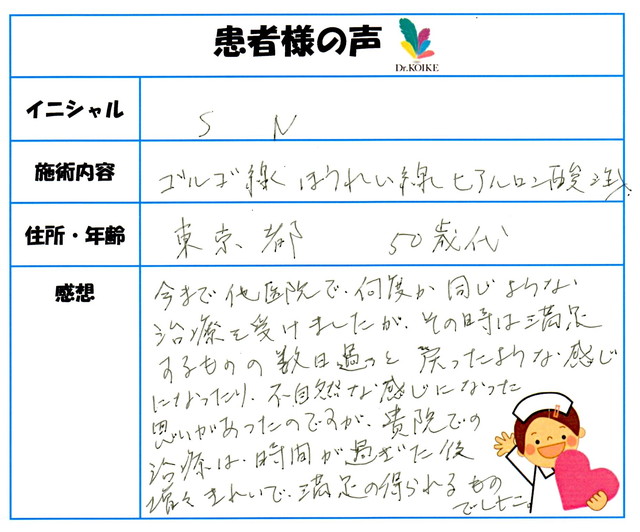 患者様の声
Dr.KOIKE
イニシャル
S N
施術内容
ゴルゴ線 ほうれい線 ヒアルロン酸注
住所・年齢
東京都 50歳代
感想
今まで他医院で、何度か同じような
治療を受けましたが、その時は満足
するものの数日過つと戻ったような感じ
になったり、不自然な感じになった
思いがあったのですが、貴院での
治療は、時間が過ぎた後
増々きれいで、満足の得られるもの
でした。